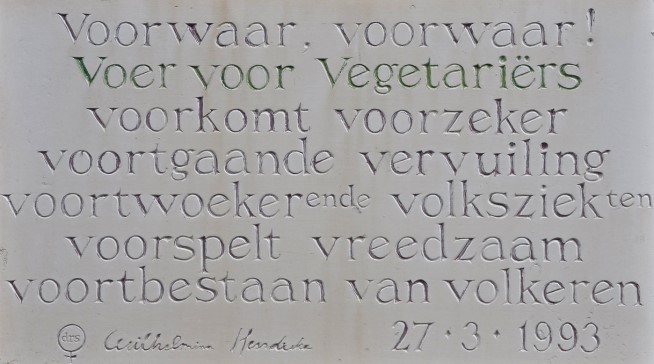 Voorwaar, voorwaar!
Voer voor Vegetariërs
voorkomt voorzeker
voortgaande vervuiling
voortwoekerende volksziekten
voorspelt vreedzaam
voortbestaan van volkeren
drs Wilhelmina 27·3·1993